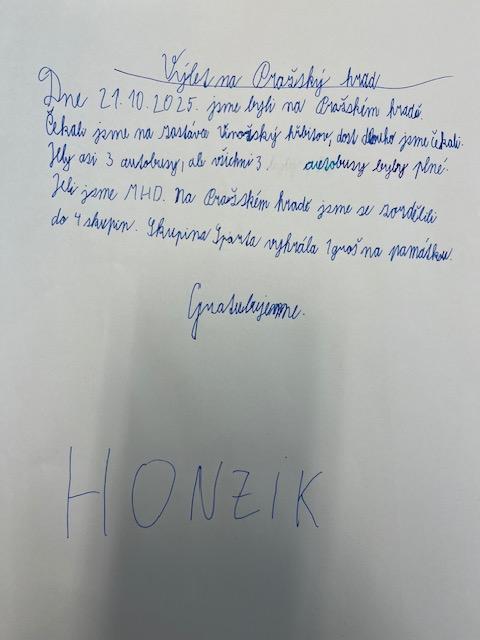 Výlet na Pražský hrad
Dne 21.10.2025. jsme byli na Pražském hradě.
Čekali jsme na zastávce Vinořský hřbitov, dost dlouho jsme čekali.
Jely asi 3 autobusy, ale všichni 3 autobusy byly plné.
Jeli jsme MHD. Na Pražském hradě jsme se rozdělili
do 4 skupin. Skupina Sparta vyhrála 1 groš na památku.
Gratulujeme.
HONZIK